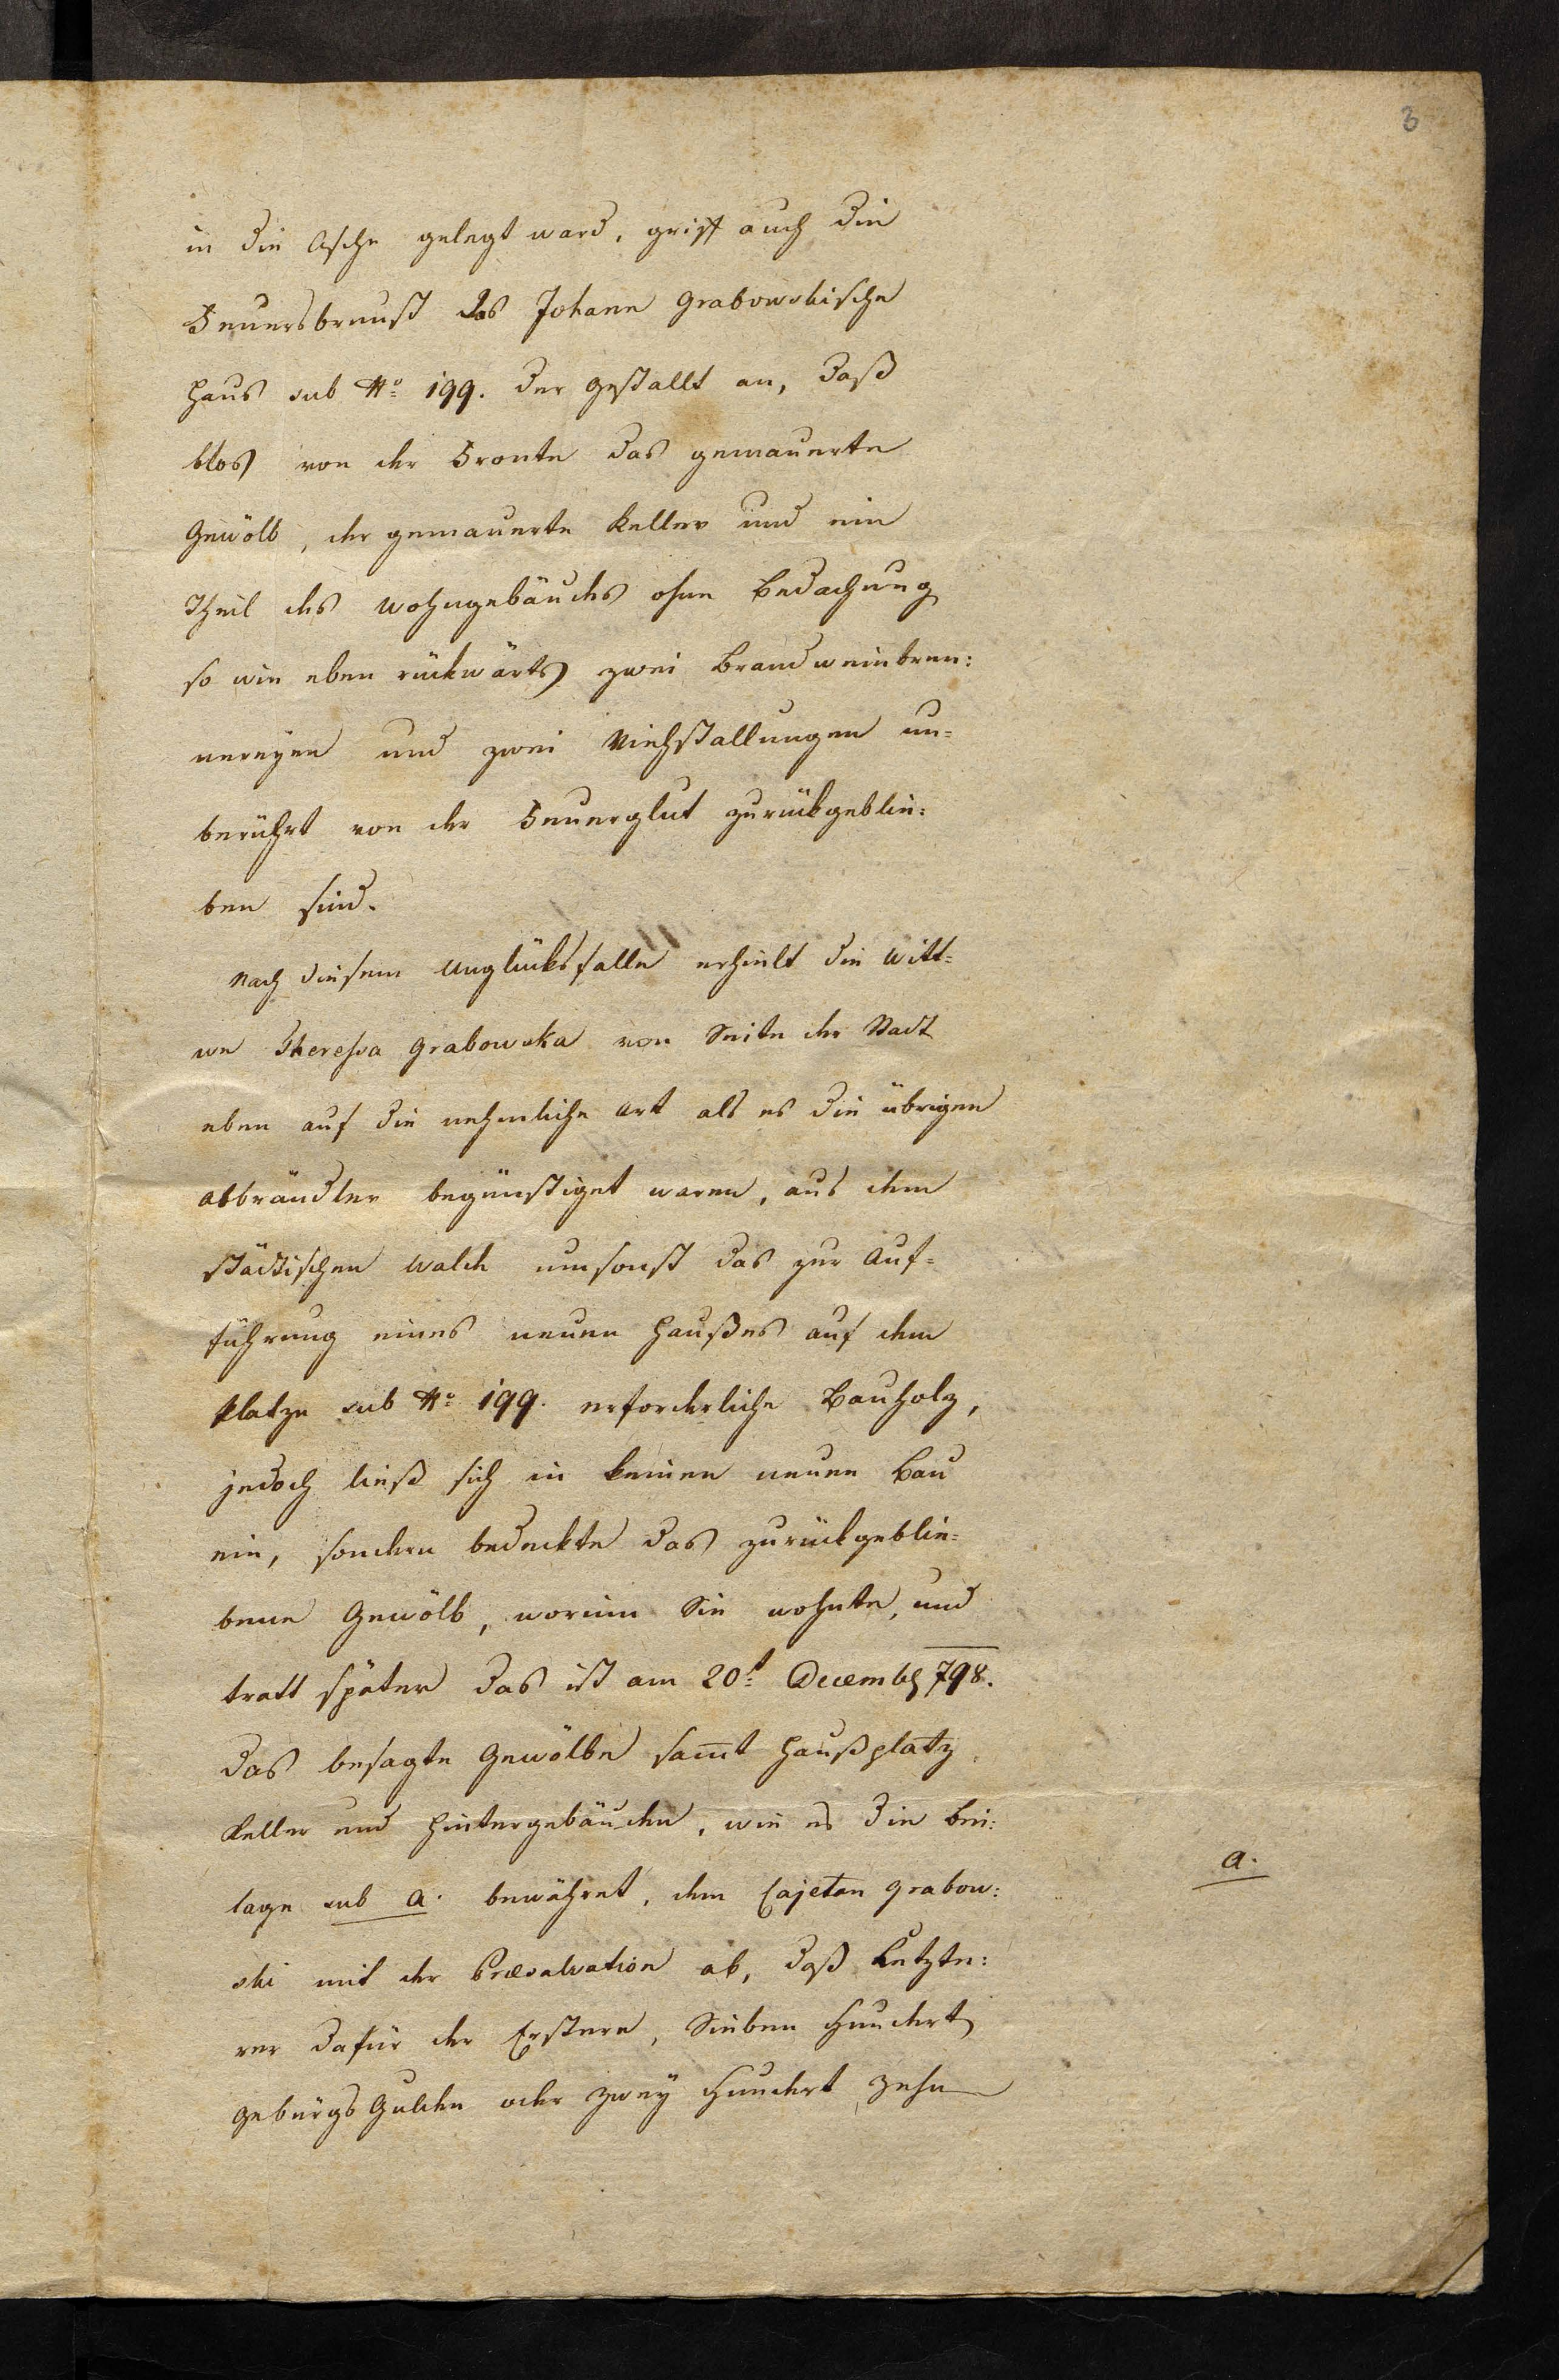 3
in die Asche gelegt ward, griff auch die
Feuersbrunst das Johann Grabowskische
Haus sub No 199. der gestallt an, daß
blos von der Fronte das gemauerte
Gewölb, der gemauerte Keller und ein
Theil des Wohngebäudes ohne Bedachung
so wie eben rückwärts zwei Brandweinbren:
nereyen und zwei Viehstallungen un=
berührt von der Feuerglut zurückgeblie:
ben sind.
Nach diesem Unglücksfalle erhielt die Witt=
we Theressa Grabowska von Seite der Stadt
eben auf die nehmliche Art als es die übrigen
Abbrändler begünstiget waren, aus dem
städtischen Walde umsonst das zur Auf=
führung eines neuen Haußes auf dem
Platze sub No 199. erforderliche Bauholz,
jedoch ließ sich in keinen neuen Bau
ein, sondern bedeckte das zurückgeblie=
bene Gewölb, worinn Sie wohnte, und
tratt später das ist am 20t Decemb 798.
das besagte Gewölbe sam̅t Haußplatz
Keller und Hintergebäuden, wie es die Bei:
lage sub a. bewähret, dem Cajetan Grabow:
a.
ski mit der Praesalvation ab, daß Letzte:
rer dafür der Erstern, Sieben Hundert
Gebürgs Gulden oder zwey Hundert zehn